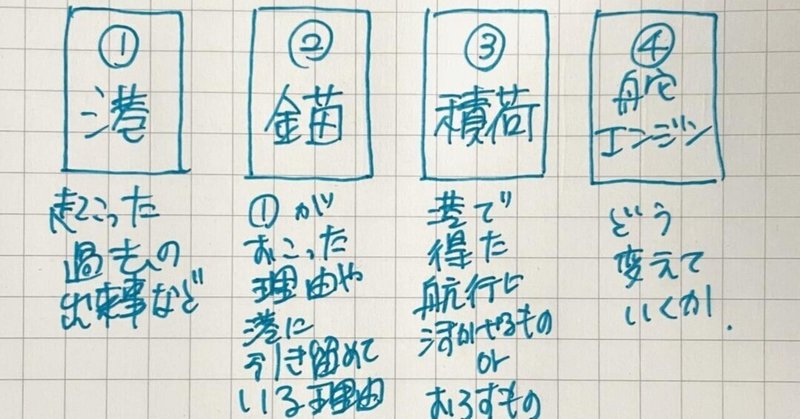 ①
港
起こった
過去の
出来事など
②
錨
①が
おこった
理由や
港に
引き留めて
いる理由
③
積荷
港で
得た
航行に
活かせるもの
or
おろすもの
④
舵
エンジン
どう
変えて
いくか.